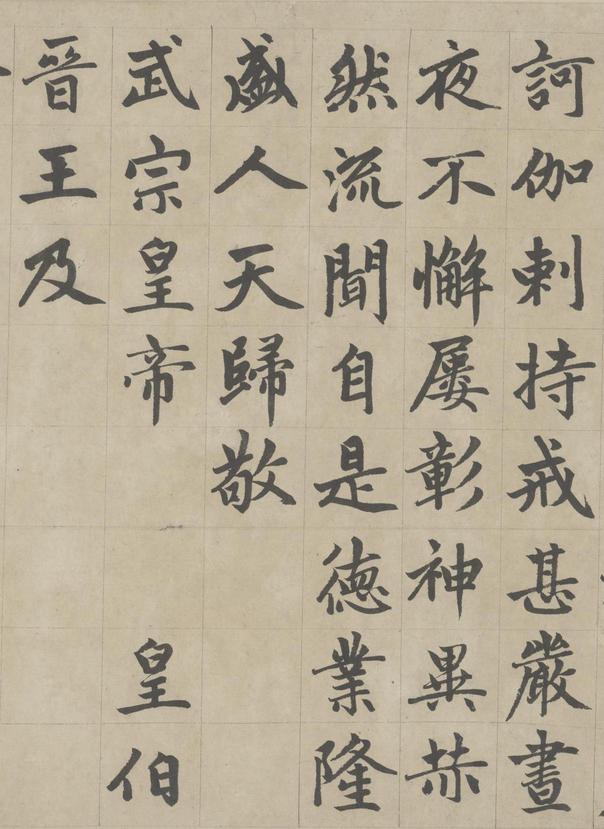 訶伽剌持戒甚嚴晝
夜不懈屢彰神異赫
然流聞自是德業隆
盛人天歸敬
武宗皇帝 皇伯
晉王及